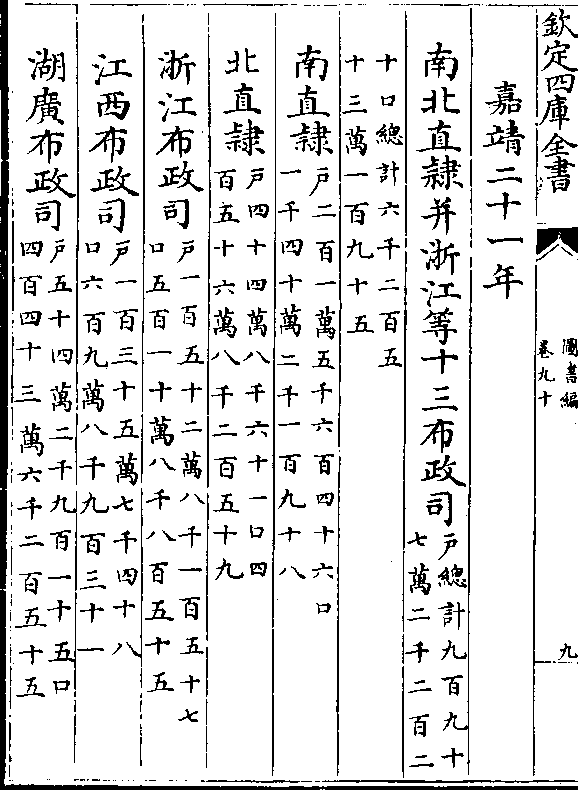 欽定四庫全書
圖書編
卷九十
九
嘉靖二十一年
南北直隸并浙江等十三布政司戶總計九百九十
七萬二千二百二
十口總計六千二百五
十三萬一百九十五
南直隸戶二百一萬五千六百四十六口
一千四十萬二千一百九十八
北直隸戶四十四萬八千六十一口四
百五十六萬八千二百五十九
浙江布政司戶一百五十二萬八千一百五十七
口五百一十萬八千八百五十五
江西布政司戶一百三十五萬七千四十八
口六百九萬八千九百三十一
湖廣布政司戶五十四萬二千九百一十五口
四百四十三萬六千二百五十五